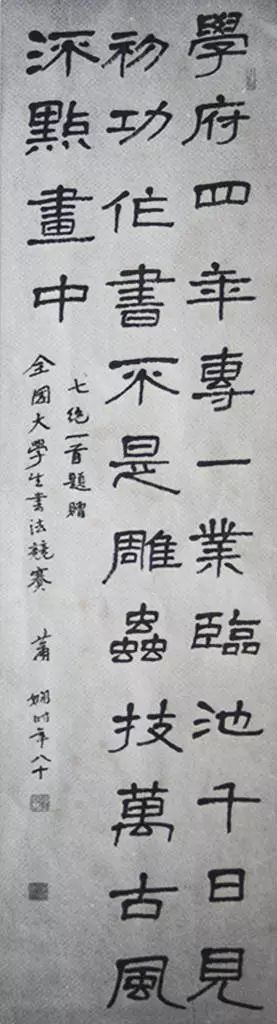 學府四年專一業臨池千日見
初功作書不是雕蟲技萬古風
流點畫中
七絕一首題贈
全國大學生書法競賽 蕭嫻時年八十